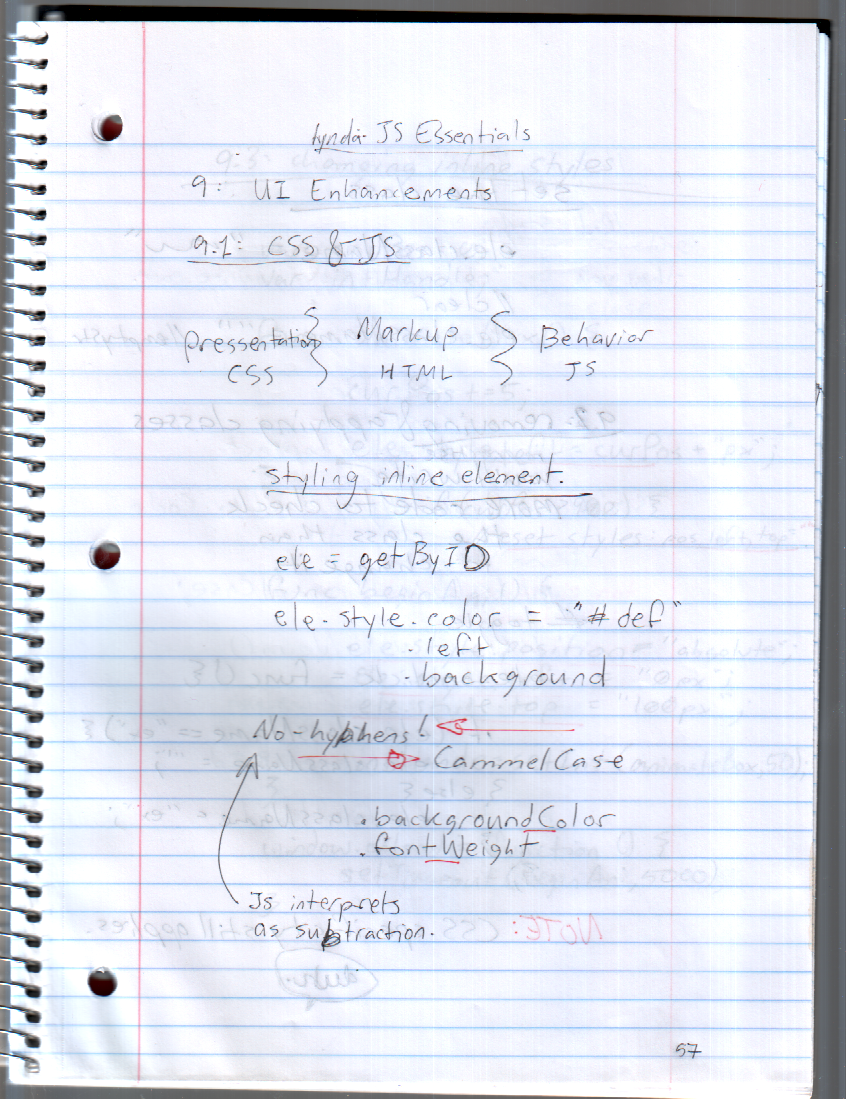 lynda- JS Essentials
9: UI Enhancements
9.1: CSS & JS
Pressentation } Markup } Behavior
CSS HTML JS
styling inline element.
ele = getByID
ele.style.color = "#def"
.left
.background
No-hyphens!
CammelCase
.backgroundColor
.fontWeight
Js interprets
as subtraction.
57